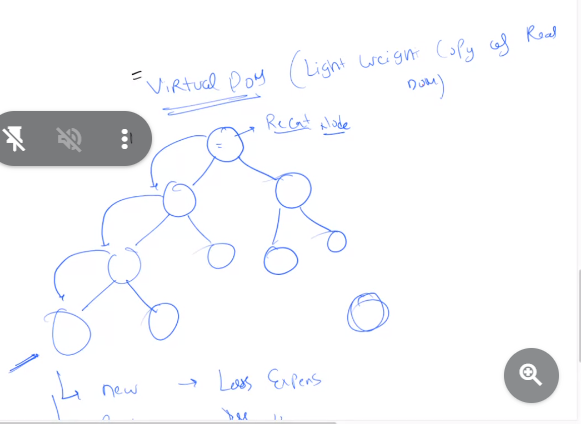 = Virtual DOM (Light Weight Copy of Real
DOM)
React Node
new → Less Expens